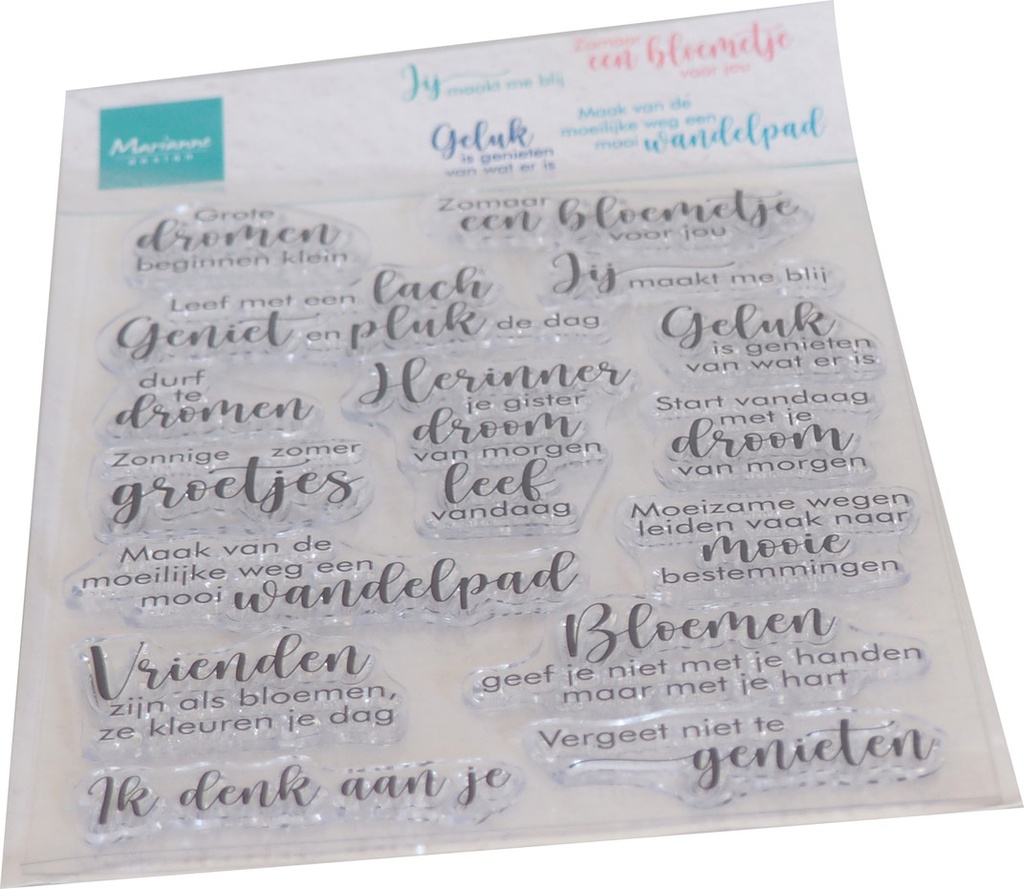 Marianne
DESIGN
Jij maakt me blij
Zomaar
een bloemetje
voor jou
Geluk
is genieten
van wat er is
Maak van de
moeilijke weg een
mooi wandelpad
Grote
dromen
beginnen klein
Zomaar
een bloemetje
voor jou
Jij maakt me blij
Leef met een lach
Geniet en pluk de dag
Geluk
is genieten
van wat er is
durf
te
dromen
Herinner
je gister
droom
van morgen
leef
vandaag
Start vandaag
met je
droom
van morgen
Zonnige zomer
groetjes
Moeizame wegen
leiden vaak naar
mooie
bestemmingen
Maak van de
moeilijke weg een
mooi wandelpad
Bloemen
geef je niet met je handen
maar met je hart
Vrienden
zijn als bloemen,
ze kleuren je dag
Vergeet niet te
genieten
Ik denk aan je